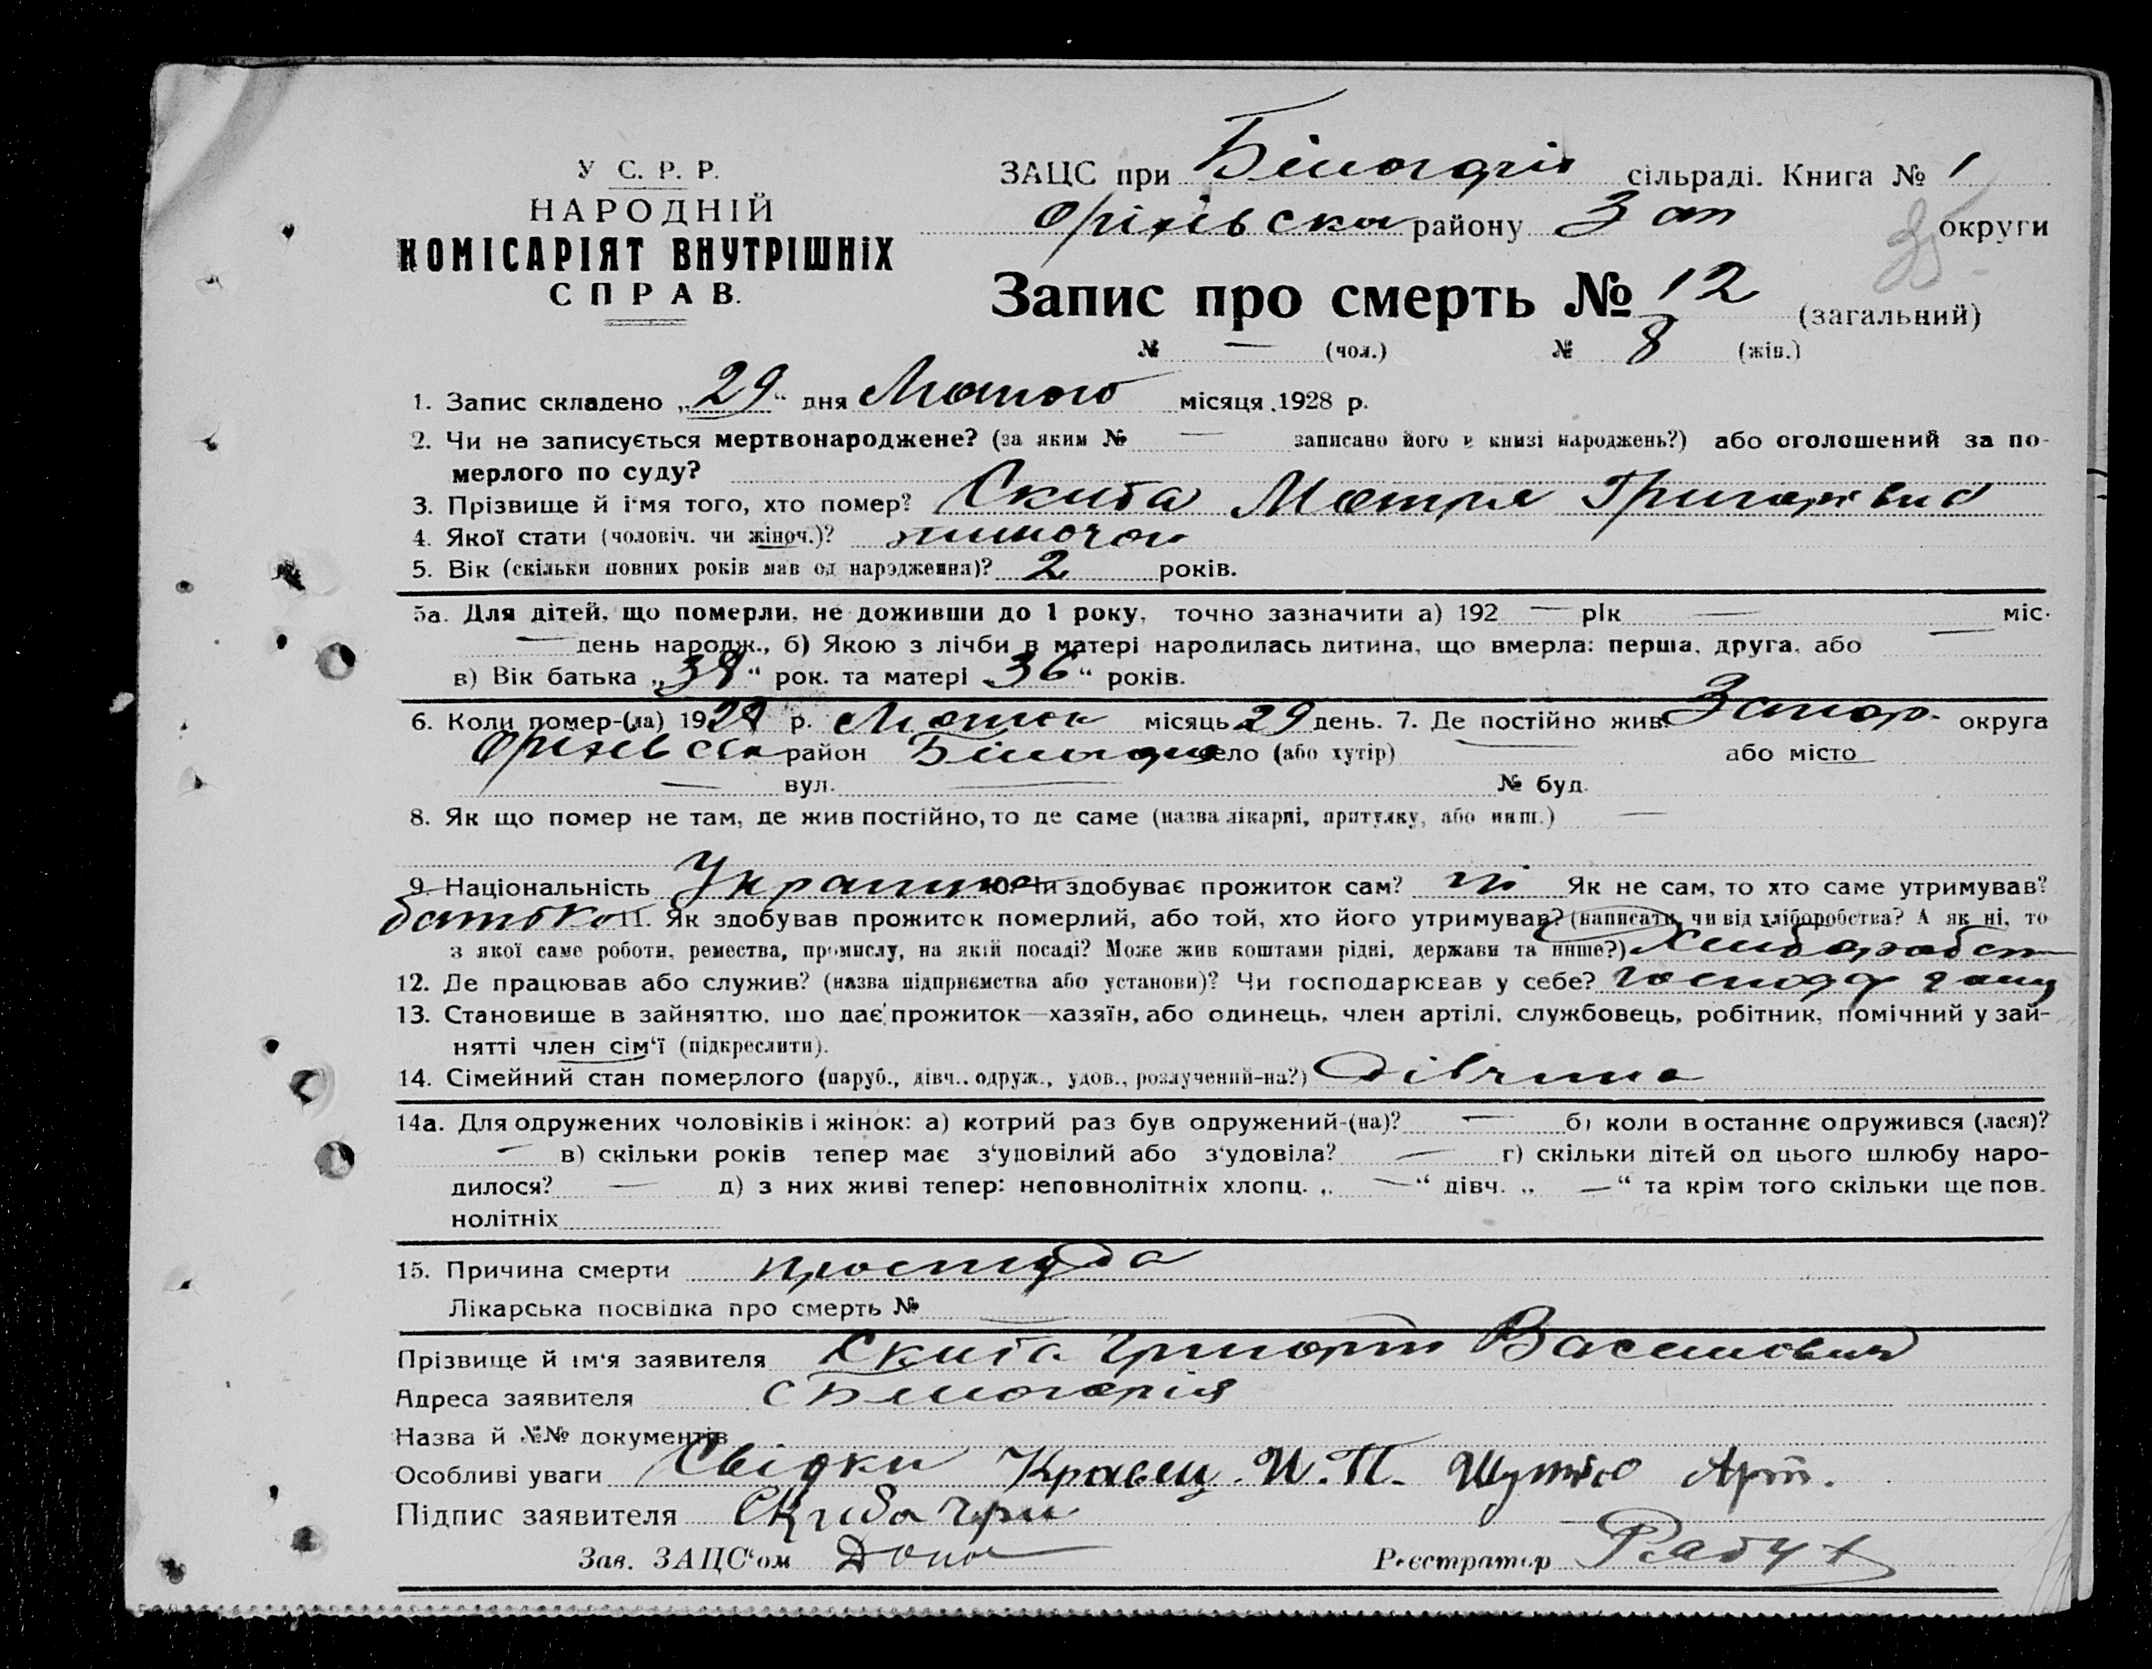 У С. Р. Р.
НАРОДНІЙ
КОМІСАРІЯТ ВНУТРІШНІХ
СПРАВ.
ЗАЦС при сільраді. Книга № 1
Оріхівська району Зап округи
Запис про смерть № 12 (загальний)
№ — (чол.) № 8 (жін.)
1. Запис складено „29“ дня Лютого місяця 1928 р.
2. Чи не записується мертвонароджене? (за яким № — записано його в книзі народжень?) або оголошений за по-
мерлого по суду?
3. Прізвище й ім'я того, хто помер? Скиба Мотря Григорівна
4. Якої стати (чоловіч. чи жіноч.)?
5. Вік (скільки повних років мав од народження)? 2 років.
5а. Для дітей, що померли, не доживши до 1 року, точно зазначити а) 192 — рік — міс.
— день народж., б) Якою з лічби в матері народилась дитина, що вмерла: перша, друга, або —
в) Вік батька „38“ рок. та матері „36“ років.
6. Коли помер-(ла) 1928 р. місяць 29 день. 7. Де постійно жив. Запор. округа
Оріхівськ район село (або хутір) — або місто
— вул. — № буд.
8. Як що помер не там, де жив постійно, то де саме (назва лікарні, притулку, або инш.) —
9. Національність Украинка 10. Чи здобуває прожиток сам? ні Як не сам, то хто саме утримував?
батько 11. Як здобував прожиток померлий, або той, хто його утримував? (написати, чи від хліборобства? А як ні, то
з якої саме роботи, ремества, промислу, на якій посаді? Може жив коштами рідні, держави та инше?) Хлиборобст
12. Де працював або служив? (назва підприємства або установи)? Чи господарював у себе?
13. Становище в зайняттю, що дає прожиток—хазяїн, або одинець, член артілі, службовець, робітник, помічний у зай-
нятті член сім'ї (підкреслити).
14. Сімейний стан померлого (паруб., дівч., одруж., удов., розлучений-на?) Дівчина
14а. Для одружених чоловіків і жінок: а) котрий раз був одружений-(на)? — б) коли в останнє одружився (лася)?
— в) скільки років тепер має з'удовілий або з'удовіла? — г) скільки дітей од цього шлюбу наро-
дилося? — д) з них живі тепер: неповнолітніх хлопц. „ —“ дівч. „ —“ та крім того скільки ще пов.
нолітніх
15. Причина смерти простуда
Лікарська посвідка про смерть № —
Прізвище й ім'я заявителя Скиба Григорій Васильович
Адреса заявителя с Білогорія
Назва й №№ документів
Особливі уваги Свідки Кравец И. П. Арт.
Підпис заявителя Скиба Гри
Зав. ЗАЦС'ом
Реєстратор